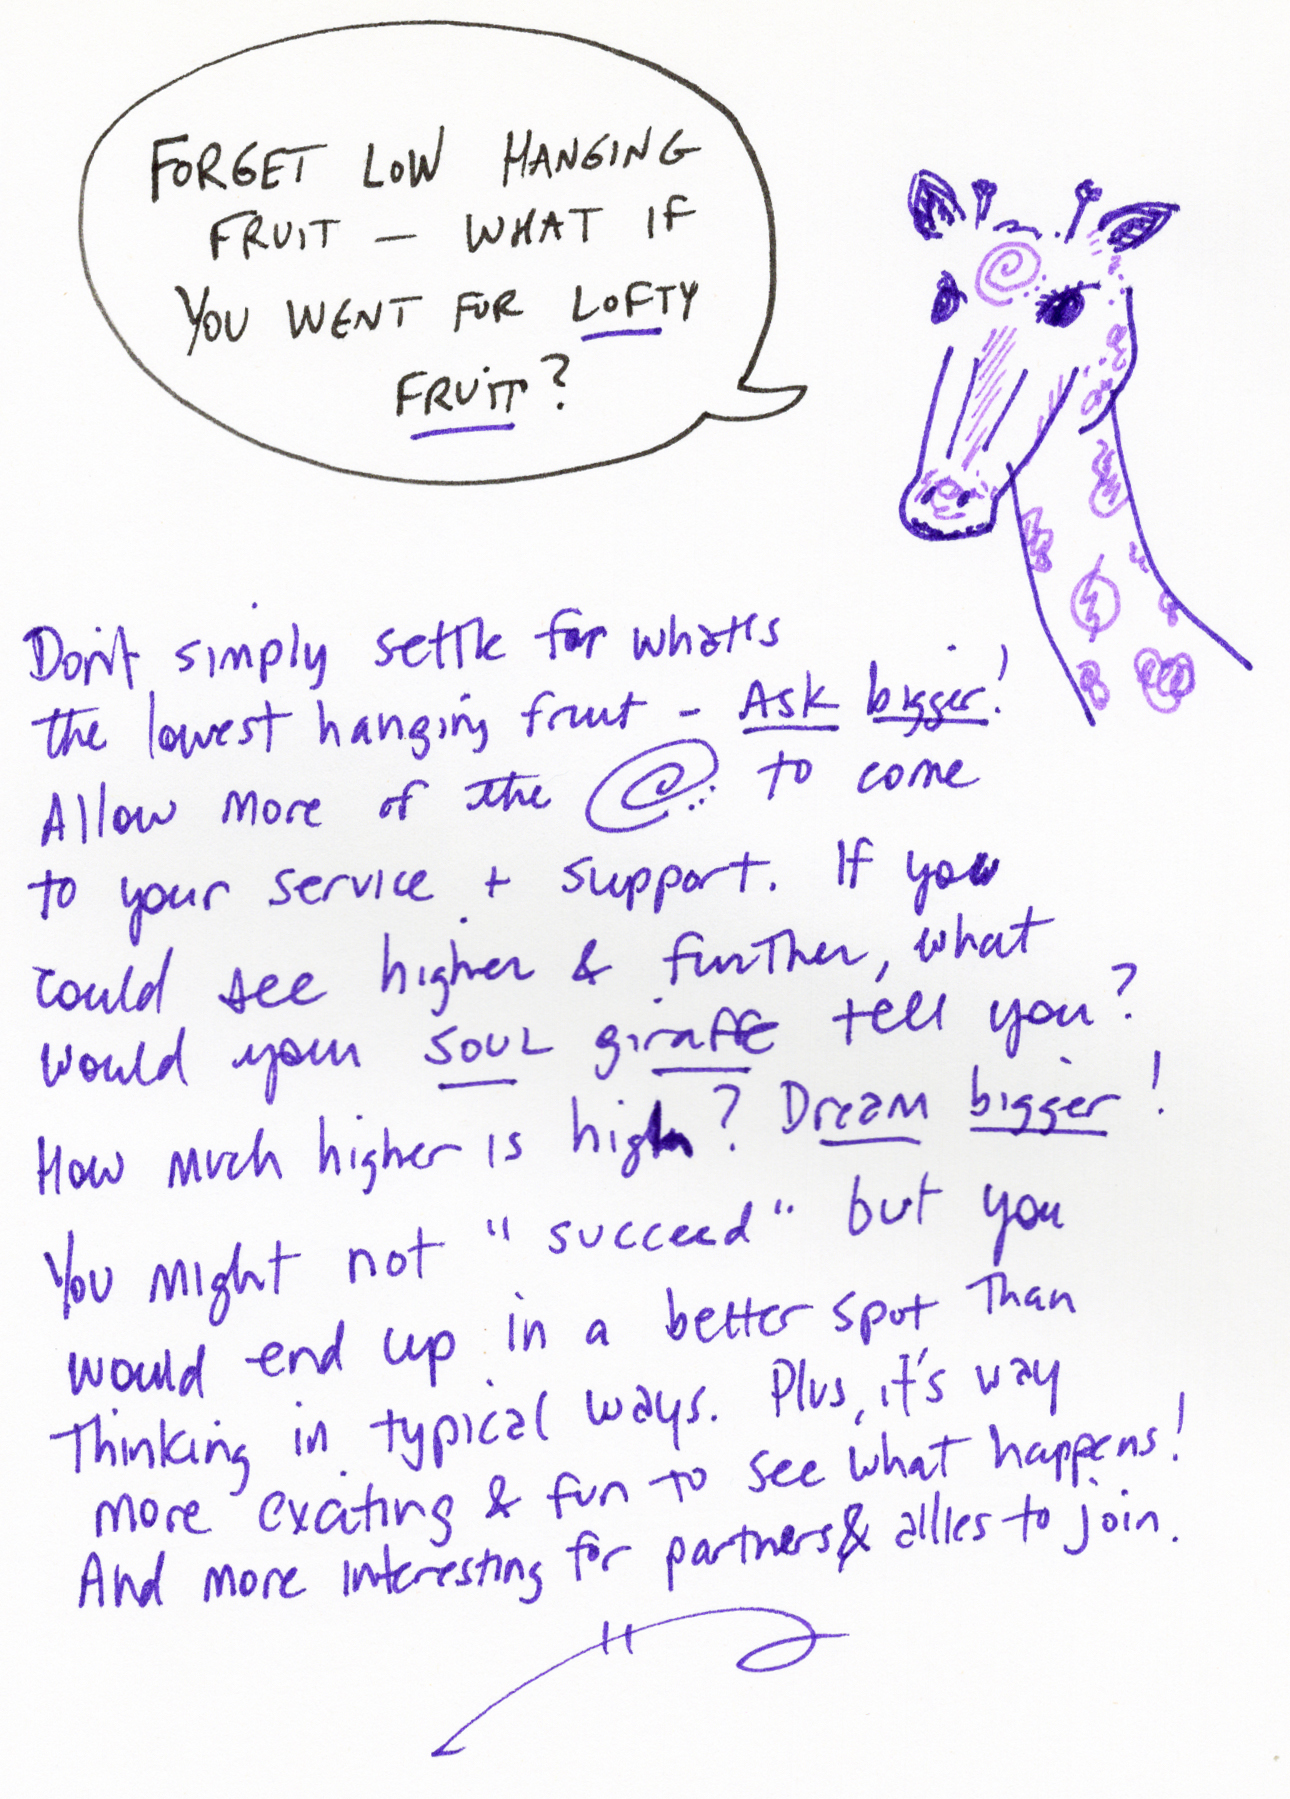 FORGET LOW HANGING
FRUIT — WHAT IF
YOU WENT FOR LOFTY
FRUIT?
Don't simply settle for what's
the lowest hanging fruit - Ask bigger!
Allow more of the to come
to your service + support. If you
could see higher & further, what
would your SOUL giraffe tell you?
How much higher is high? Dream bigger!
You might not "succeed" but you
would end up in a better spot than
thinking in typical ways. Plus, it's way
more exciting & fun to see what happens!
And more interesting for partners & allies to join.